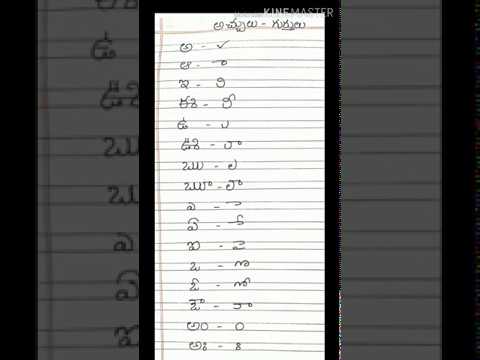 KINEMASTER
అచ్చులు - గుర్తులు
అ - ✓
ఆ - ా
ఇ - ి
ఈ - ీ
ఉ - ు
ఊ - ూ
ఋ - ృ
ౠ - ౄ
ఎ - ె
ఏ - ే
ఐ - ై
ఒ - ొ
ఓ - ో
ఔ - ౌ
అం - ం
అః - ః